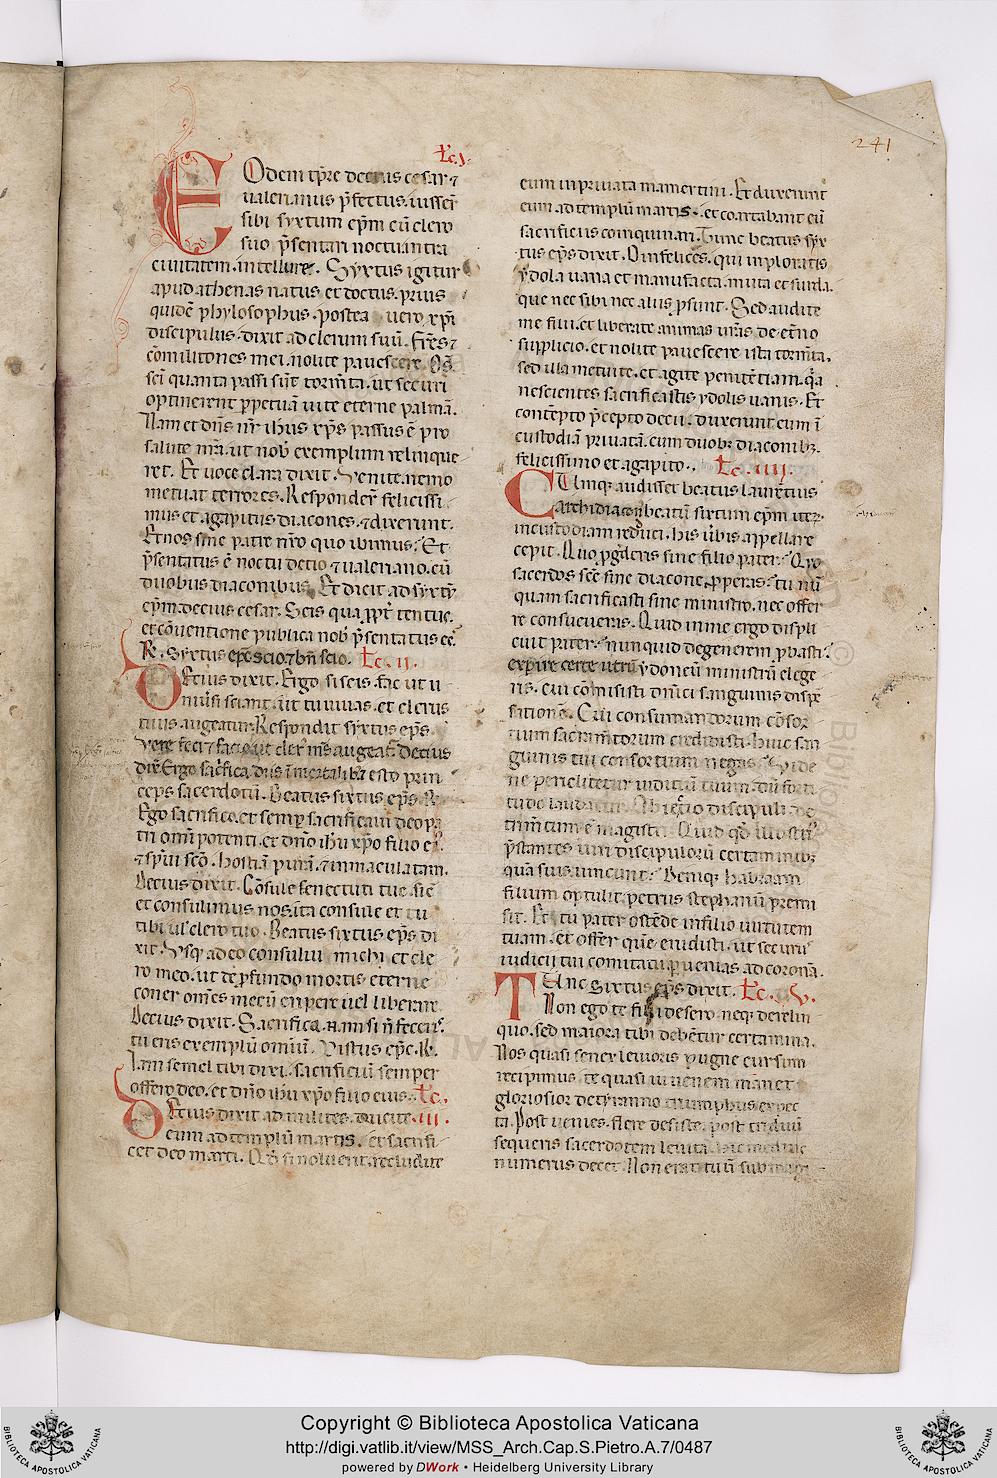 241
Lc. i.
EOdem tp̄re decius cesar ⁊
ualerianus p̄fectus. iusser̄
sibi syxtum ep̄m cū clero
suo p̄sentari noctu intra
ciuitatem. in tellure. Syxtus igitur
apud athenas natus et doctus. prius
quidē phylosophus. postea uero xp̄i
discipulus. dixit ad clerum suū. Fr̄es ⁊
cōmilitones mei. nolite pauescere. Oēs
sc̄i quanta passi sūt torm̄ta. ut securi
optinerent p̄petuā uite eterne palmā.
Nam et dn̄s nr̄ ihus xp̄s passus ē pro
salute nr̄a. ut nob̄ exemplum relinque
ret. Et uoce clara dixit. Venite. nemo
metuat terrores. Responder̄ felicissi
mus et agapitus diacones. ⁊ dixerunt.
Et nos sine patre nr̄o quo ibimus? Et
p̄sentatus ē noctu decio ⁊ ualeriano. cū
duobus diaconibus. Et dicit ad syxtū
ep̄m. decius cesar. Scis qua ppt̄ tentus.
et cōuentione publica nob̄ p̄sentatus es.
R̄. Syxtus ep̄c. scio. ⁊ bn̄ scio. Lc. ii.
DEcius dixit. Ergo si scis. fac ut u
niūsi sciant. ut tu uiuas. et clerus
tuus augeatur. Respondit sixtus ep̄s.
Vere feci ⁊ facio ut cler̄ m̄s augeat̄. Decius
dix̄. Ergo sac̄fica diis īmortalib⁊ esto prin
ceps sacerdotū. Beatus sixtus ep̄s R̄.
Ego sacrifico. et semp̄ sacrificaui deo pa
tri om̄ipotenti. et dn̄o ihū xp̄o filio ei⁹
⁊ sp̄ui sc̄o. hostiā purā. ⁊ inmaculatam.
Decius dixit. Cōsule senectuti tue. sic̄
et consulimus nos. ita consule et tu
tibi ul̄ clero tuo. Beatus sixtus ep̄s di
xit. Vsq; adeo consului michi et cle
ro meo. ut de p̄fundo mortis eterne
coner om̄es mecū eripere uel liberare.
Decius dixit. Sacrifica. nam si n̄ fecer̄.
tu eris exemplū omīū. Xistus ep̄c. R̄.
Iam semel tibi dixi. sacrificiū semper
offero deo. et dn̄o ihū xp̄o filio eius. Lc.
DEcius dixit ad milites. ducite iii.
eum ad templū martis. et sacrifi
cet deo marti. Qd̄ si noluerit. recludite
eum in priuata mamertini. Et duxerunt
eum ad templū martis. et coartabant eū
sacrificiis coinquinari. Tunc beatus syx
tus ep̄s dixit. O infelices. qui inploratis
ydola uana et manufacta. muta et surda.
que nec sibi nec aliis p̄sunt. Sed audite
me filii. et liberate animas ur̄as de et̄no
supplicio. et nolite pauescere ista torm̄ta.
sed illa metuite. et agite penitētiam. q̄a
nescientes sacrificastis ydolis uanis. Et
contēpto p̄cepto decii. duxerunt eum ī
custodiā priuatā. cum duob⁊ diaconib⁊.
felicissimo et agapito. Lc. iiii.
CVmq; audisset beatus laurētius
archidiacon⁹ beatū sixtum ep̄m iter̄
in custodiam reduci. his ūbis appellare
cepit. Quo pḡderis sine filio pater? Quo
sacerdos sc̄e sine diacone p̄peras? tu nū
quam sacrificasti sine ministro. nec offer
re consueueras. Quid in me ergo displi
cuit pater? nunquid degenerem p̄basti?
expire certe utrū ydoneū ministrū elege
ris. cui cōmisisti dn̄ici sanguinis dispē
sationē. Cui consumandorum cōsor
tium sacram̄torum credidisti. huic san
guinis tui consortium negas? Vide
ne periclitetur iudiciū tuum. dū forti
tudo laudatur. Abiectio discipuli. de
trim̄tum ē magistri. Quid qd̄ illustres
p̄stantes uiri discipulorū certaminib⁊
quā suis uincunt? Deniq; habraam
filium optulit. petrus stephanū premi
sit. Et tu pater ostēde in filio uirtutem
tuam. et offer quē erudisti. ut securus
iudicii tui comitatu p̄uenias ad coronā.
TUnc Sixtus ep̄s dixit. Lc. V.
Non ego te fili desero. neq; derelin
quo. sed maiora tibi debētur certamina.
Nos quasi senes leuioris pugne cursum
recipimus. te quasi iuuenem manet
gloriosior de tyranno triumphus expec
ta. Post uenies. flere desiste. post triduū
sequeris sacerdotem leuita. hic medius
numerus decet. Non erat tuū sub magi
Copyright © Biblioteca Apostolica Vaticana
http://digi.vatlib.it/view/MSS_Arch.Cap.S.Pietro.A.7/0487
powered by DWork • Heidelberg University Library
BIBLIOTECA APOSTOLICA VATICANA
BIBLIOTECA APOSTOLICA VATICANA